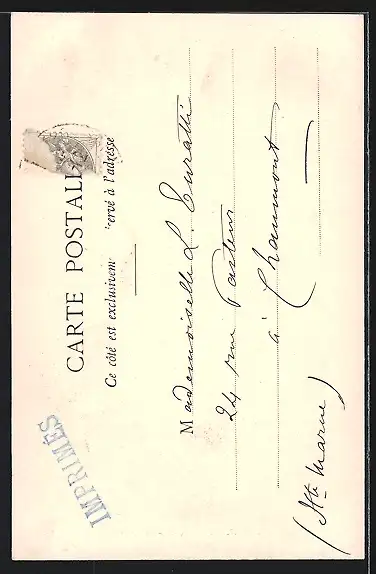 IMPRIMÉS
CARTE POSTALE
Ce côté est exclusivem ervé à l'adresse
Mademoiselle L. Curatti
24 rue Pasteur
à Chaumont
(Hte Marne)